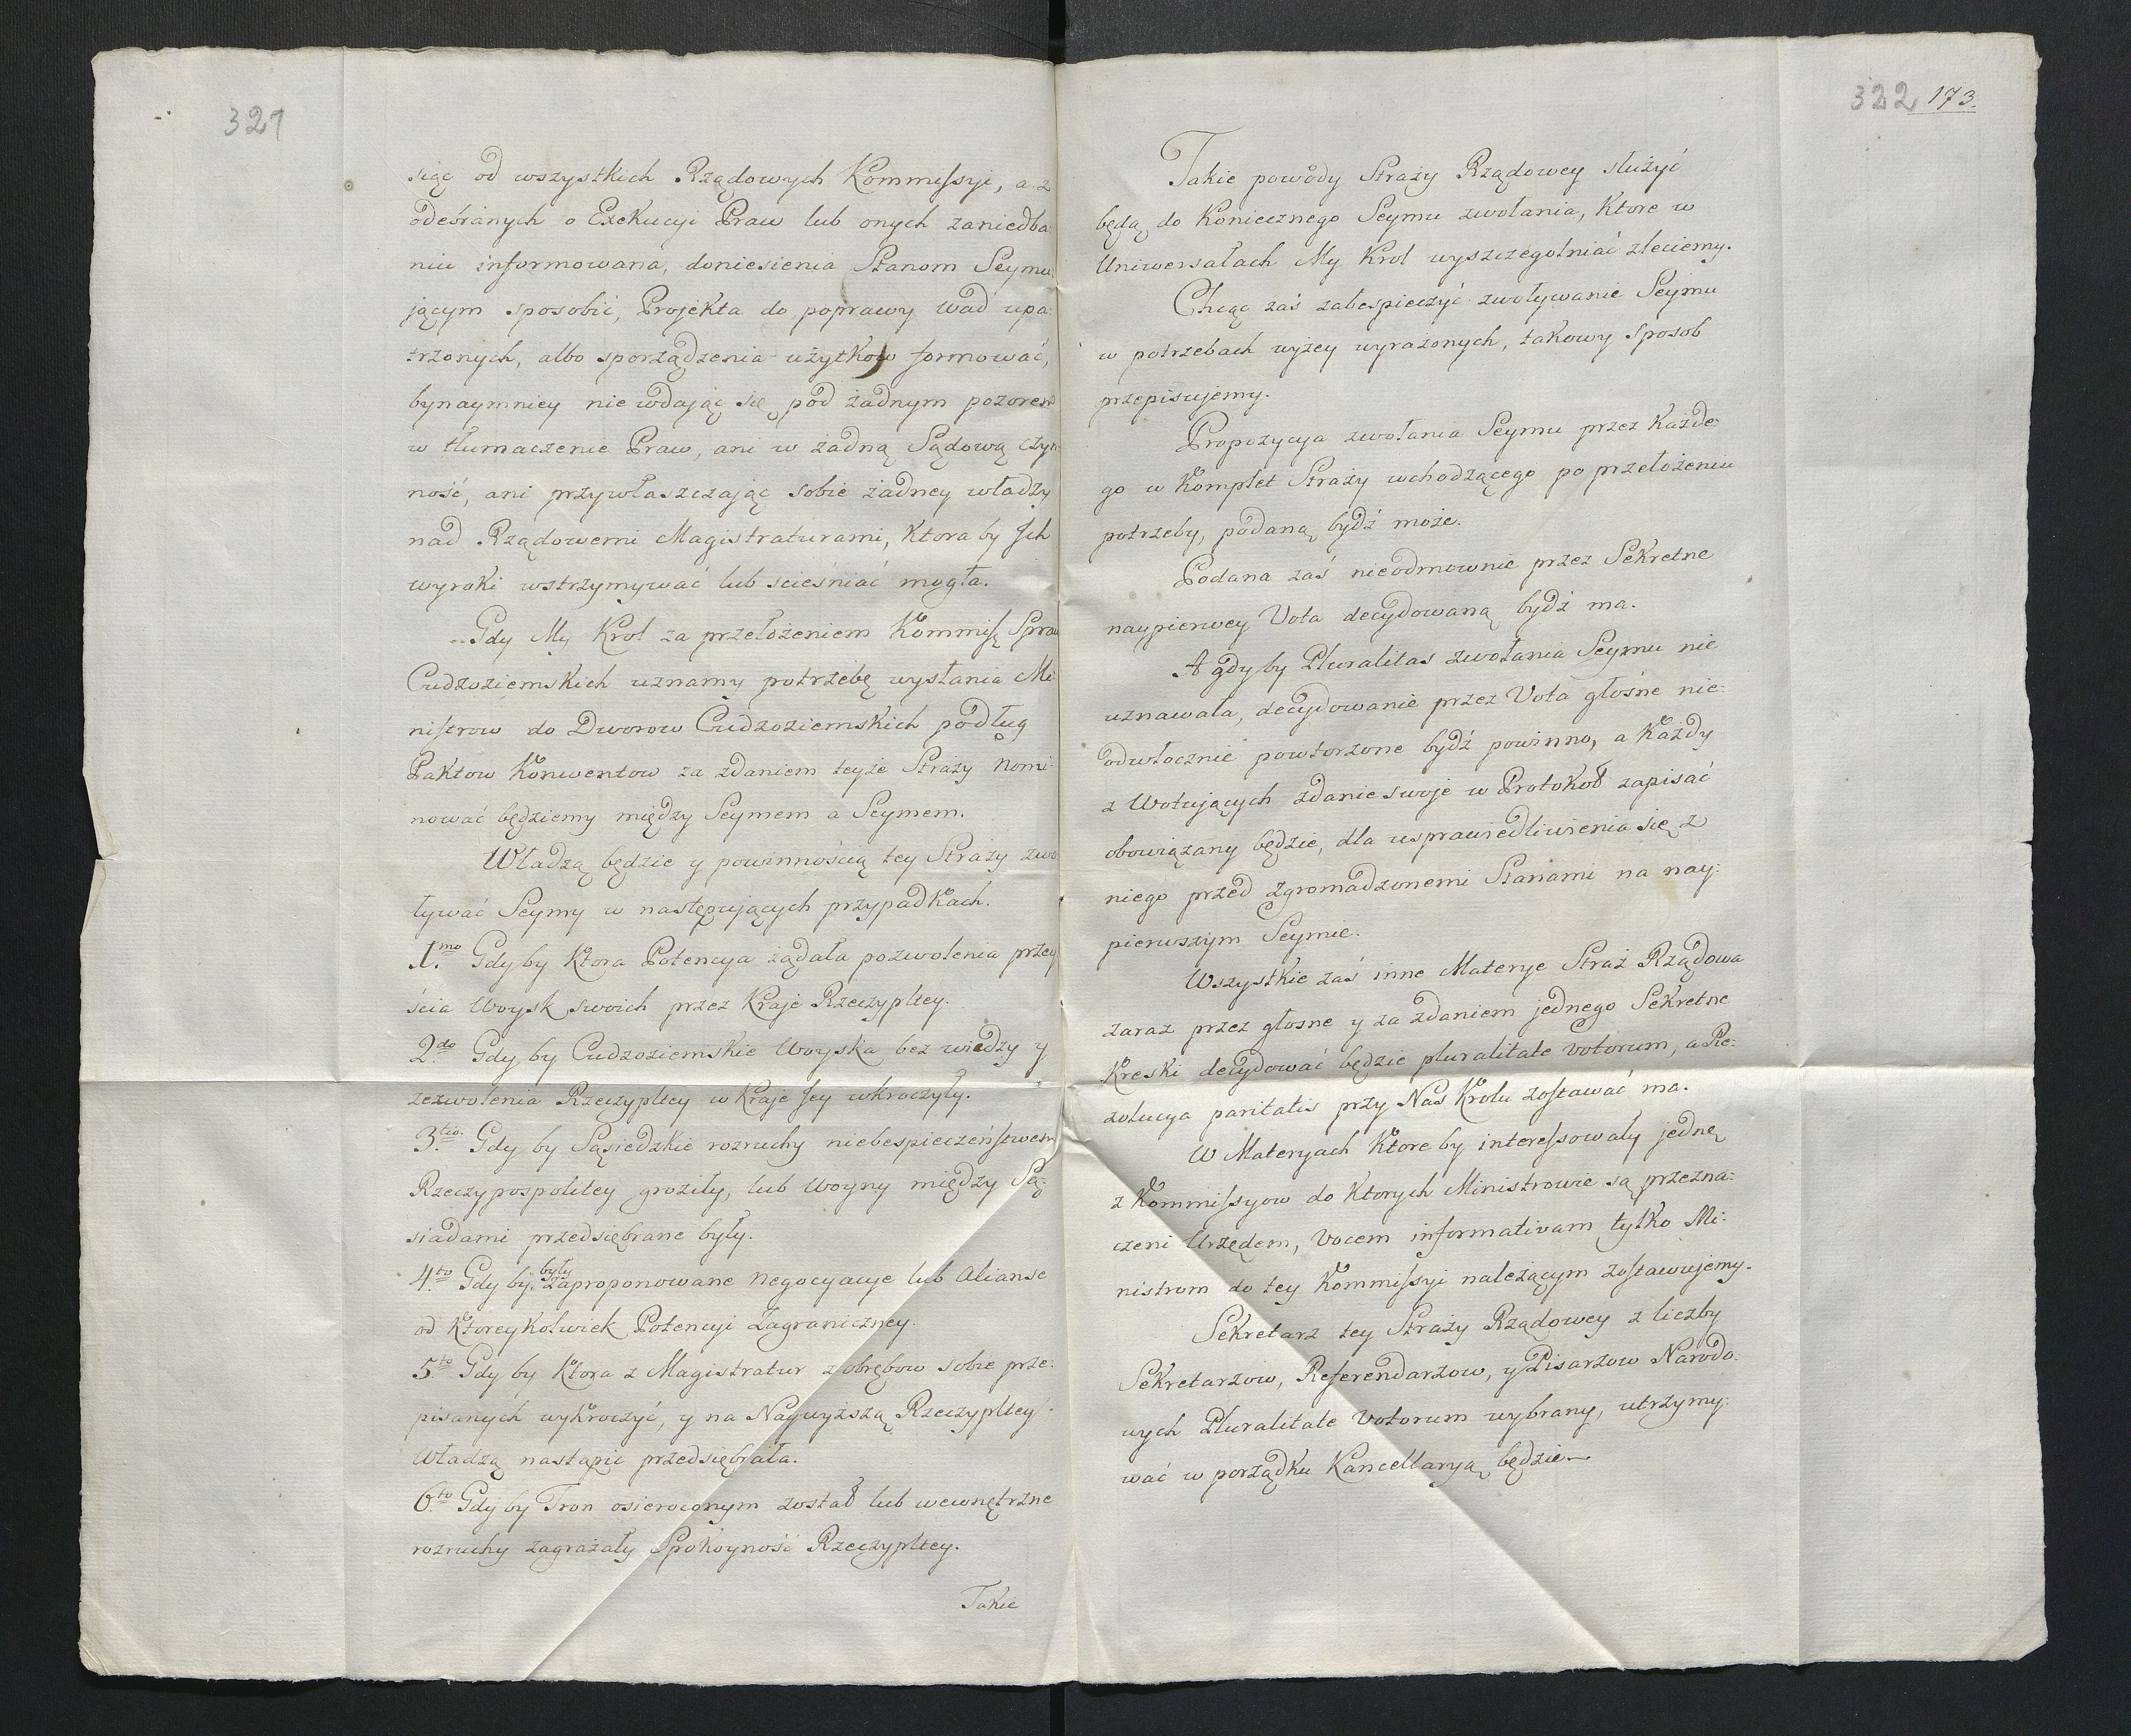 321
siąc od wszystkich Rządowych Kommissyi, a z
odebranych o Exekucyi Praw lub onych zaniedba
niu informowana, doniesienia Stanom Seymu
jącym sposobić, Projekta do poprawy wad upa:
trzonych, albo sporządzenia użytkow formować,
bynaymniey nie wdając się pod żadnym pozorem
w tłumaczenie Praw, ani w żadną Sądową czyn
ność, ani przywłaszczając sobie żadney władzy
nad Rządowemi Magistraturami, Ktora by Jch
wyroki wstrzymywać lub scieśniać mogła.
Gdy My Krol za przełożeniem Kommisę Spraw
Cudzoziemskich uznamy potrzebę wysłania Mi:
nistrow do Dworow Cudzoziemskich podług
Paktow Konwentow za zdaniem teyże Straży nomi:
nować będziemy między Seymem a Seymem.
Władzą będzie y powinnością tey Straży zwo
ływać Seymy w następujących przypadkach.
1.mo Gdy by Ktora Potencya żądała pozwolenia przey
ścia Woysk swoich przez Kraje Rzeczypltey.
2.do Gdy by Cudzoziemskie Woyska bez wiedzy y
zezwolenia Rzeczypltey w Kraje Jey wkroczyły.
3.tio Gdy by Sąsiedzkie rozruchy niebespieczeństwem
Rzeczypospolitey groziły, lub Woyny między Są:
siadami przedsiębrane były.
4.to Gdy by były zaproponowane negocyacye lub Alianse
od Ktoreykolwiek Potencyi Zagraniczney.
5.to Gdy by Ktora z Magistratur z obrębow sobie prze:
pisanych wykroczyć, y na Naywyższą Rzeczypltey
Władzą nastąpić przedsiębrała.
6.to Gdy by Tron osieroconym został lub wewnętrzne
rozruchy zagrażały Spokoyność Rzeczypltey.
Takie
322 173.
Takie powody Straży Rządowey służyć
będą do Koniecznego Seymu zwołania, Ktore w
Uniwersałach My Krol wyszczegolniać zleciemy.
Chcąc zaś zabespieczyć zwoływanie Seymu
w potrzebach wyżey wyrażonych, takowy sposob
przepisujemy.
Propozycya zwołania Seymu przez Każde:
go w Komplet Straży wchodzącego po przełożeniu
potrzeby, podaną bydź może.
Podana zaś nieodmownie przez Sekretne
naypierwey Vota decydowaną bydź ma.
A gdy by Pluralitas zwołania Seymu nie
uznawała, decydowanie przez Vota głośne nie:
odwłocznie powtorzone bydź powinno, a Każdy
z Wotujących zdanie swoje w Protokoł zapisać
obowiązany będzie, dla usprawiedliwienia się z
niego przed zgromadzonemi Stanami na nay:
pierwszym Seymie.
Wszystkie zaś inne Materye Straż Rządowa
zaraz przez głosne y za zdaniem jednego Sekretne
Kreski decydować będzie pluralitate votorum, a Re:
zolucya paritatis przy Nas Krolu zostawać ma.
W Materyach Ktore by interessowały jednę
z Kommissyow do Ktorych Ministrowie są przezna:
czeni Urzędem, Vocem informativam tylko Mi:
nistrom do tey Kommissyi należącym zostawujemy.
Sekretarz tey Straży Rządowey z liczby
Sekretarzow, Referendarzow, y Pisarzow Narodo:
wych Pluralitate Votorum wybrany, utrzymy:
wać w porządku Kancellaryą będzie